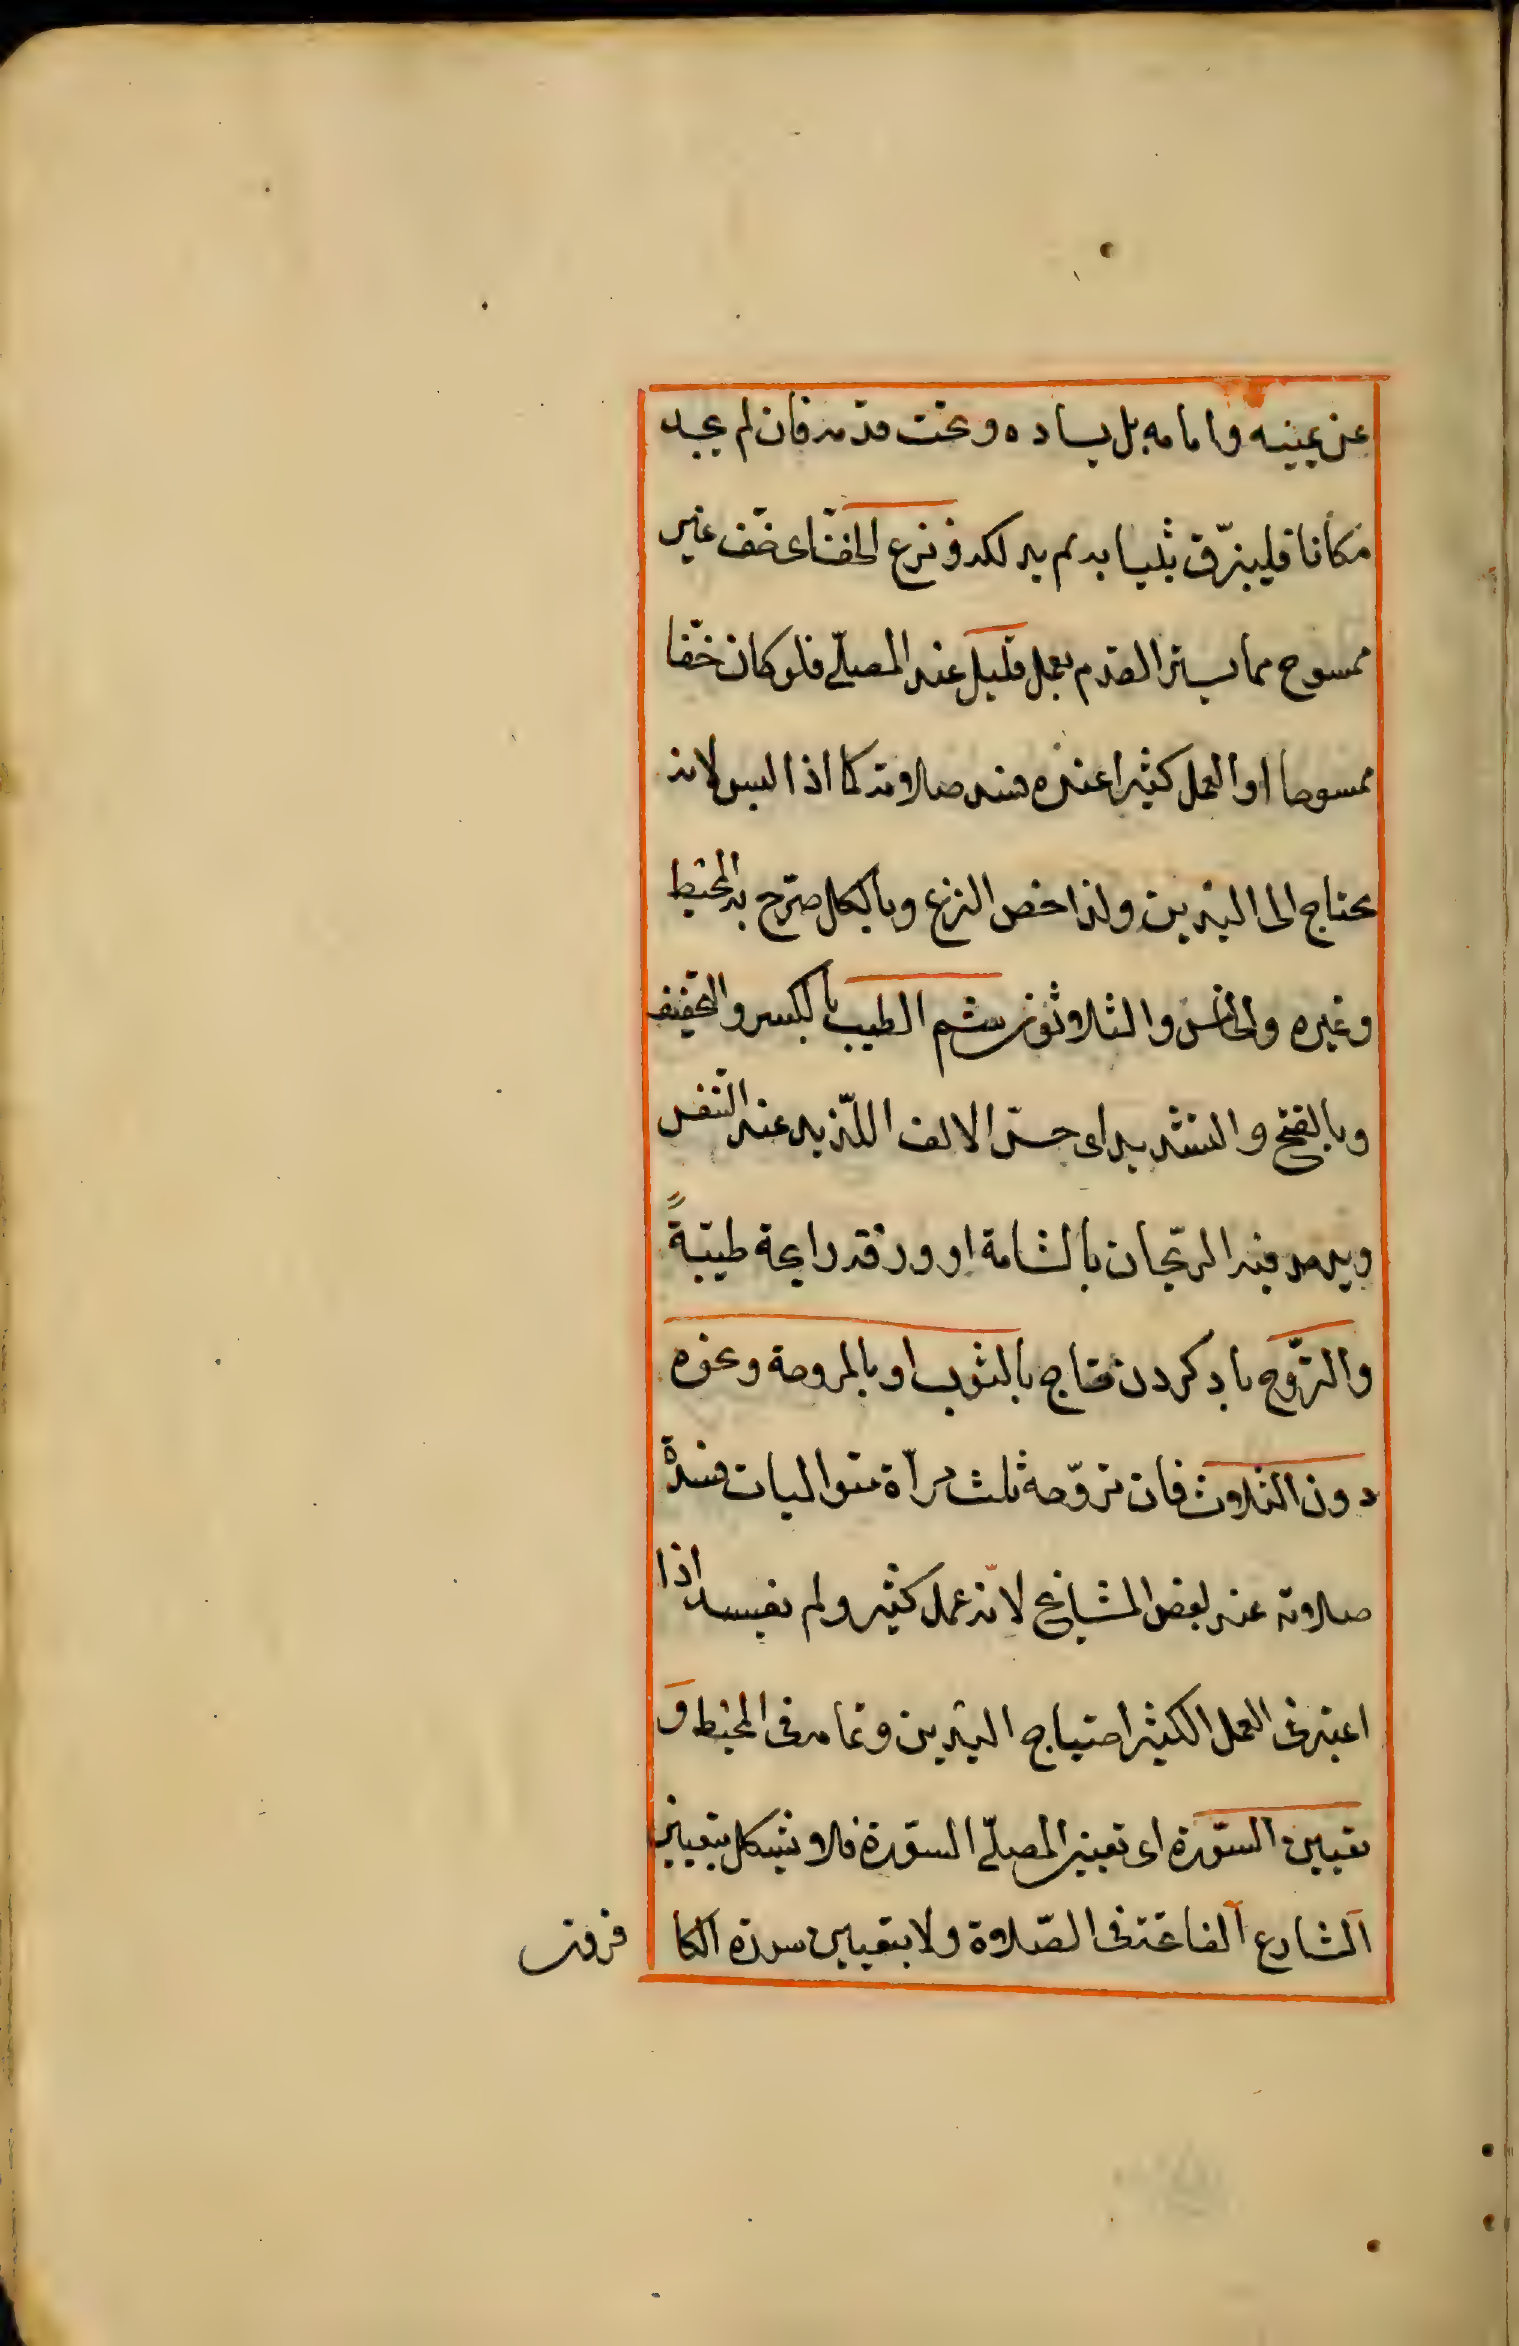 عن يمينه وامامه بل يساره وتحت قدمه فان لم يجد
مكانا فليبزق بثيابه ثم يدلكه ونزع الخف اى خف غير
ممسوح مما يستر القدم بعمل قليل عند المصلّى فلو كان خفّا
ممسوحا او العمل كثيرا عنده فسد صلاوته كما اذا لبس لانه
يحتاج الى اليدين ولذا خص النزع وبالكل صرّح به المحيط
وغيره والخامس والثلاوثون شم الطيب بالكسر والتخفيف
وبالفتح والتشديد اى حسّ الانف اللّذيذ عند التنفس
ويدخل فيه الريّحان بالشامة او ورقه رايحة طيّبةً
والتروّح باد كردن محتاج بالثوب او بالمروحة ونحوه
دون الثلاوث فان تروّحه ثلث مرآة متواليات فسدة
صلاوته عند بعض المشايخ لانّه عمل كثير ولم تفسد اذا
اعتبر فى العمل الكثير احتياج اليدين وتمامه فى المحيط وَ
تعيين السّورة اى تعيين المصلّى السّورة فلاو يشكل بتعيين
الشارع الفاتحة فى الصّلاوة ولا بتعيين سورة الكا
فرون